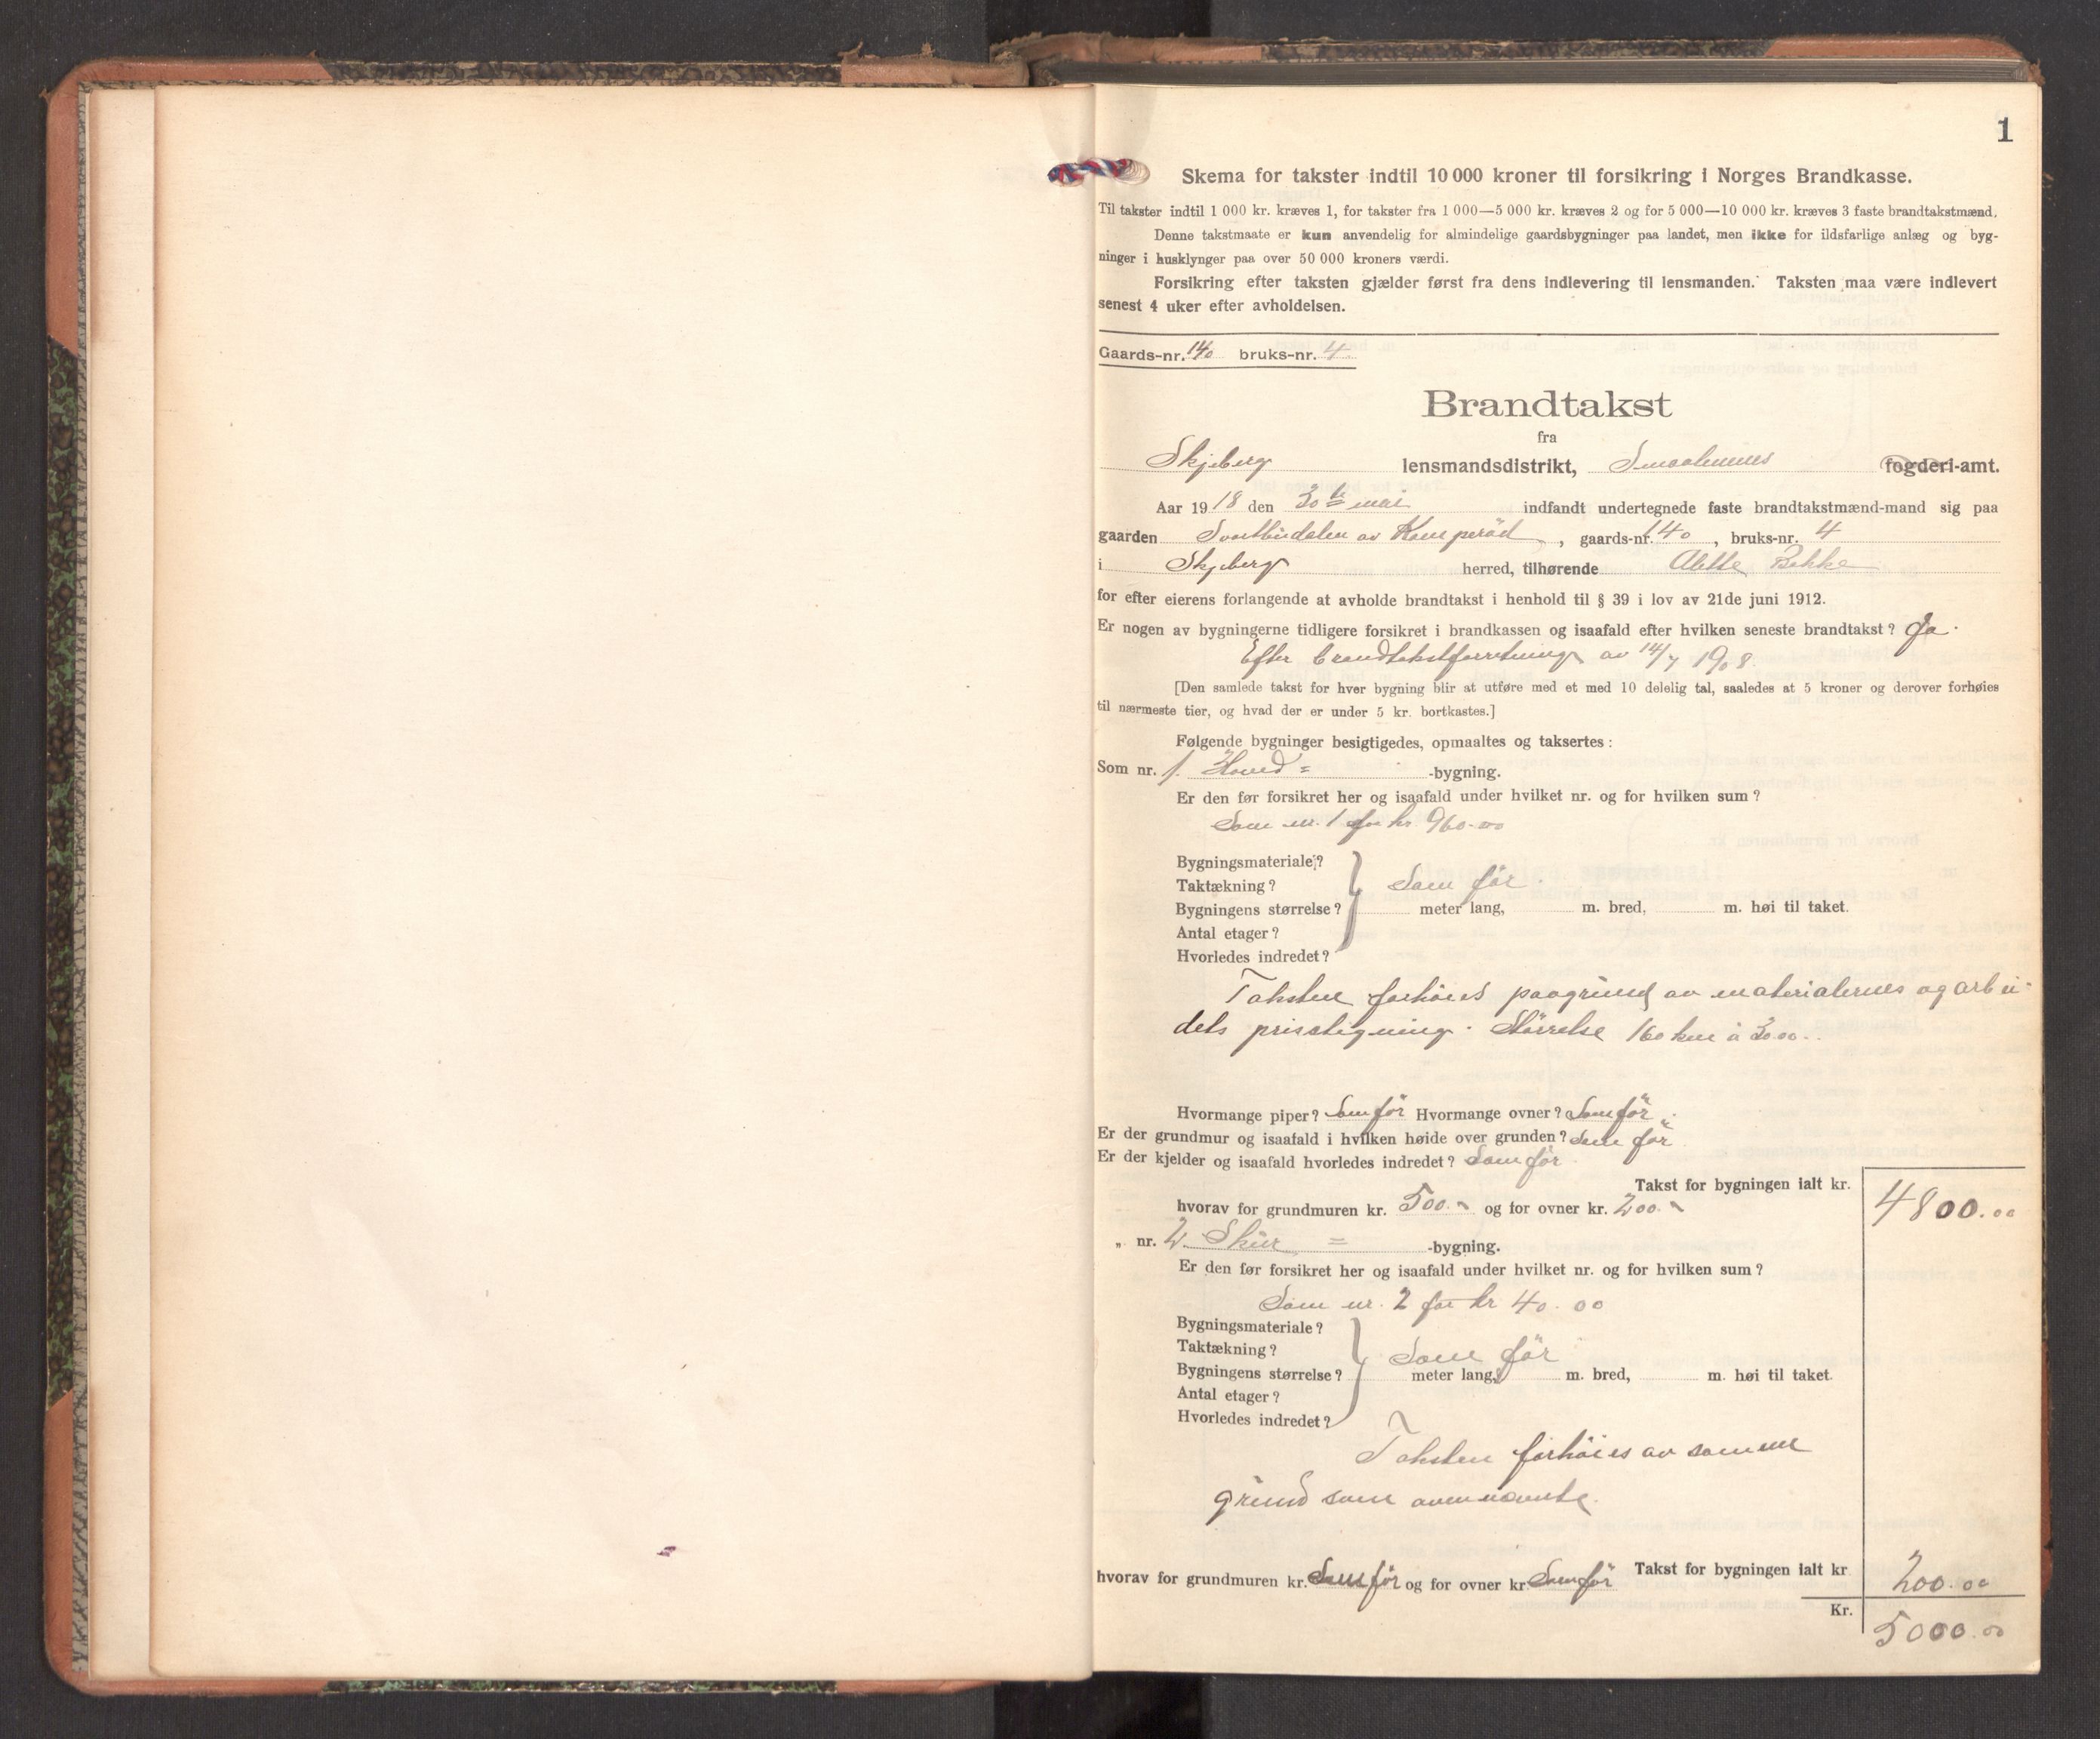 1
Skema for takster indtil 10 000 kroner til forsikring i Norges Brandkasse.
Til takster indtil 1 000 kr. kræves 1, for takster fra 1 000—5 000 kr. kræves 2 og for 5 000—10 000 kr. kræves 3 faste brandtakstmænd.
Denne takstmaate er kun anvendelig for almindelige gaardsbygninger paa landet, men ikke for ildsfarlige anlæg og byg-
ninger i husklynger paa over 50 000 kroners værdi.
Forsikring efter taksten gjælder først fra dens indlevering til lensmanden. Taksten maa være indlevert
senest 4 uker efter avholdelsen.
Gaards-nr. 140 bruks-nr. 4
Brandtakst
fra
Skjeberg lensmandsdistrikt, Smaalenenes fogderi-amt.
Aar 1918 den 30te mai indfandt undertegnede faste brandtakstmænd-mand sig paa
gaarden Svartbudalen av Kamperöd, gaards-nr. 140, bruks-nr. 4
i Skjeberg herred, tilhørende Alette Bekke
for efter eierens forlangende at avholde brandtakst i henhold til § 39 i lov av 21de juni 1912.
Er nogen av bygningerne tidligere forsikret i brandkassen og isaafald efter hvilken seneste brandtakst? Ja.
Efter brandtakstforretning av 14/7 1908.
[Den samlede takst for hver bygning blir at utføre med et med 10 delelig tal, saaledes at 5 kroner og derover forhøies
til nærmeste tier, og hvad der er under 5 kr. bortkastes.]
Følgende bygninger besigtigedes, opmaaltes og taksertes:
Som nr. 1. Hoved= -bygning.
Er den før forsikret her og isaafald under hvilket nr. og for hvilken sum?
Som nr. 1 for kr. 960.00
Bygningsmateriale?
Taktækning? Som för.
Bygningens størrelse? meter lang, m. bred, m. høi til taket.
Antal etager?
Hvorledes indredet?
Taksten forhöies paagrund av materialernes og arbei-
dets prisstigning. Störrelse 160 km à 30.00.
Hvormange piper? Som för Hvormange ovner? Som för.
Er der grundmur og isaafald i hvilken høide over grunden? Som för
Er der kjelder og isaafald hvorledes indredet? Som för
Takst for bygningen ialt kr. 4800.00
hvorav for grundmuren kr. 500.- og for ovner kr. 200.-
„ nr. 2. Skur = -bygning.
Er den før forsikret her og isaafald under hvilket nr. og for hvilken sum?
Som nr. 2 for kr 40.00
Bygningsmateriale?
Taktækning? Som för
Bygningens størrelse? meter lang, m. bred, m. høi til taket.
Antal etager?
Hvorledes indredet?
Taksten forhöies av samme
grund som ovennævnte.
Takst for bygningen ialt kr 200.00
hvorav for grundmuren kr. Som för og for ovner kr. Som för
Kr. 5000.00